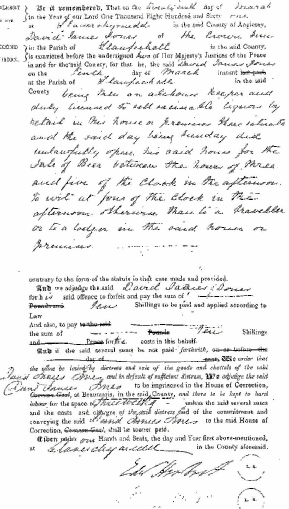 Be it remembered, That on the twentieth day of March
in the Year of our Lord One Thousand Eight Hundred and Sixty one
at Llanerchymedd in the County of Anglesey,
David James Jones of the Crown Inn
in the Parish of Llanfachell in the said County,
is convicted before the undersigned two of Her Majesty's Justices of the Peace
in and for the said County, for that he, the said David James Jones
on the tenth day of March instant
at the Parish of Llanfachell in the said County
being then an alehouse keeper and
duly licensed to sell exciseable liquors by
retail in his house or premises there situate
and the said day being Sunday did
unlawfully open his said house for the
Sale of Beer between the hours of three
and five of the Clock in the afternoon
To wit at four of the Clock in the
afternoon otherwise than to a traveller
or to a lodger in the said house or
premises
contrary to the form of the statute in that case made and provided.
And we adjudge the said David James Jones
for his said offence to forfeit and pay the sum of
Ten Shillings to be paid and applied according to
Law
And also, to pay to the said
Pounds Ten Shillings
and Pence for the costs in this behalf
And if the said several sums be not paid forthwith, on or before the
day of next, We order that
the same be levied by distress and sale of the goods and chattels of the said
David James Jones and in default of sufficient distress, We adjudge the said
David James Jones to be imprisoned in the House of Correction,
Common Gaol, at Beaumaris, in the said County, and there to be kept to hard
labour for the space of unless the said several sums
and the costs and charges of the said distress and of the commitment and
conveying the said David James Jones to the said House of
Correction, Common Gaol, shall be sooner paid.
Given under our Hands and Seals, the day and Year first above-mentioned,
at Llanerchymedd in the County aforesaid.
L S
L S